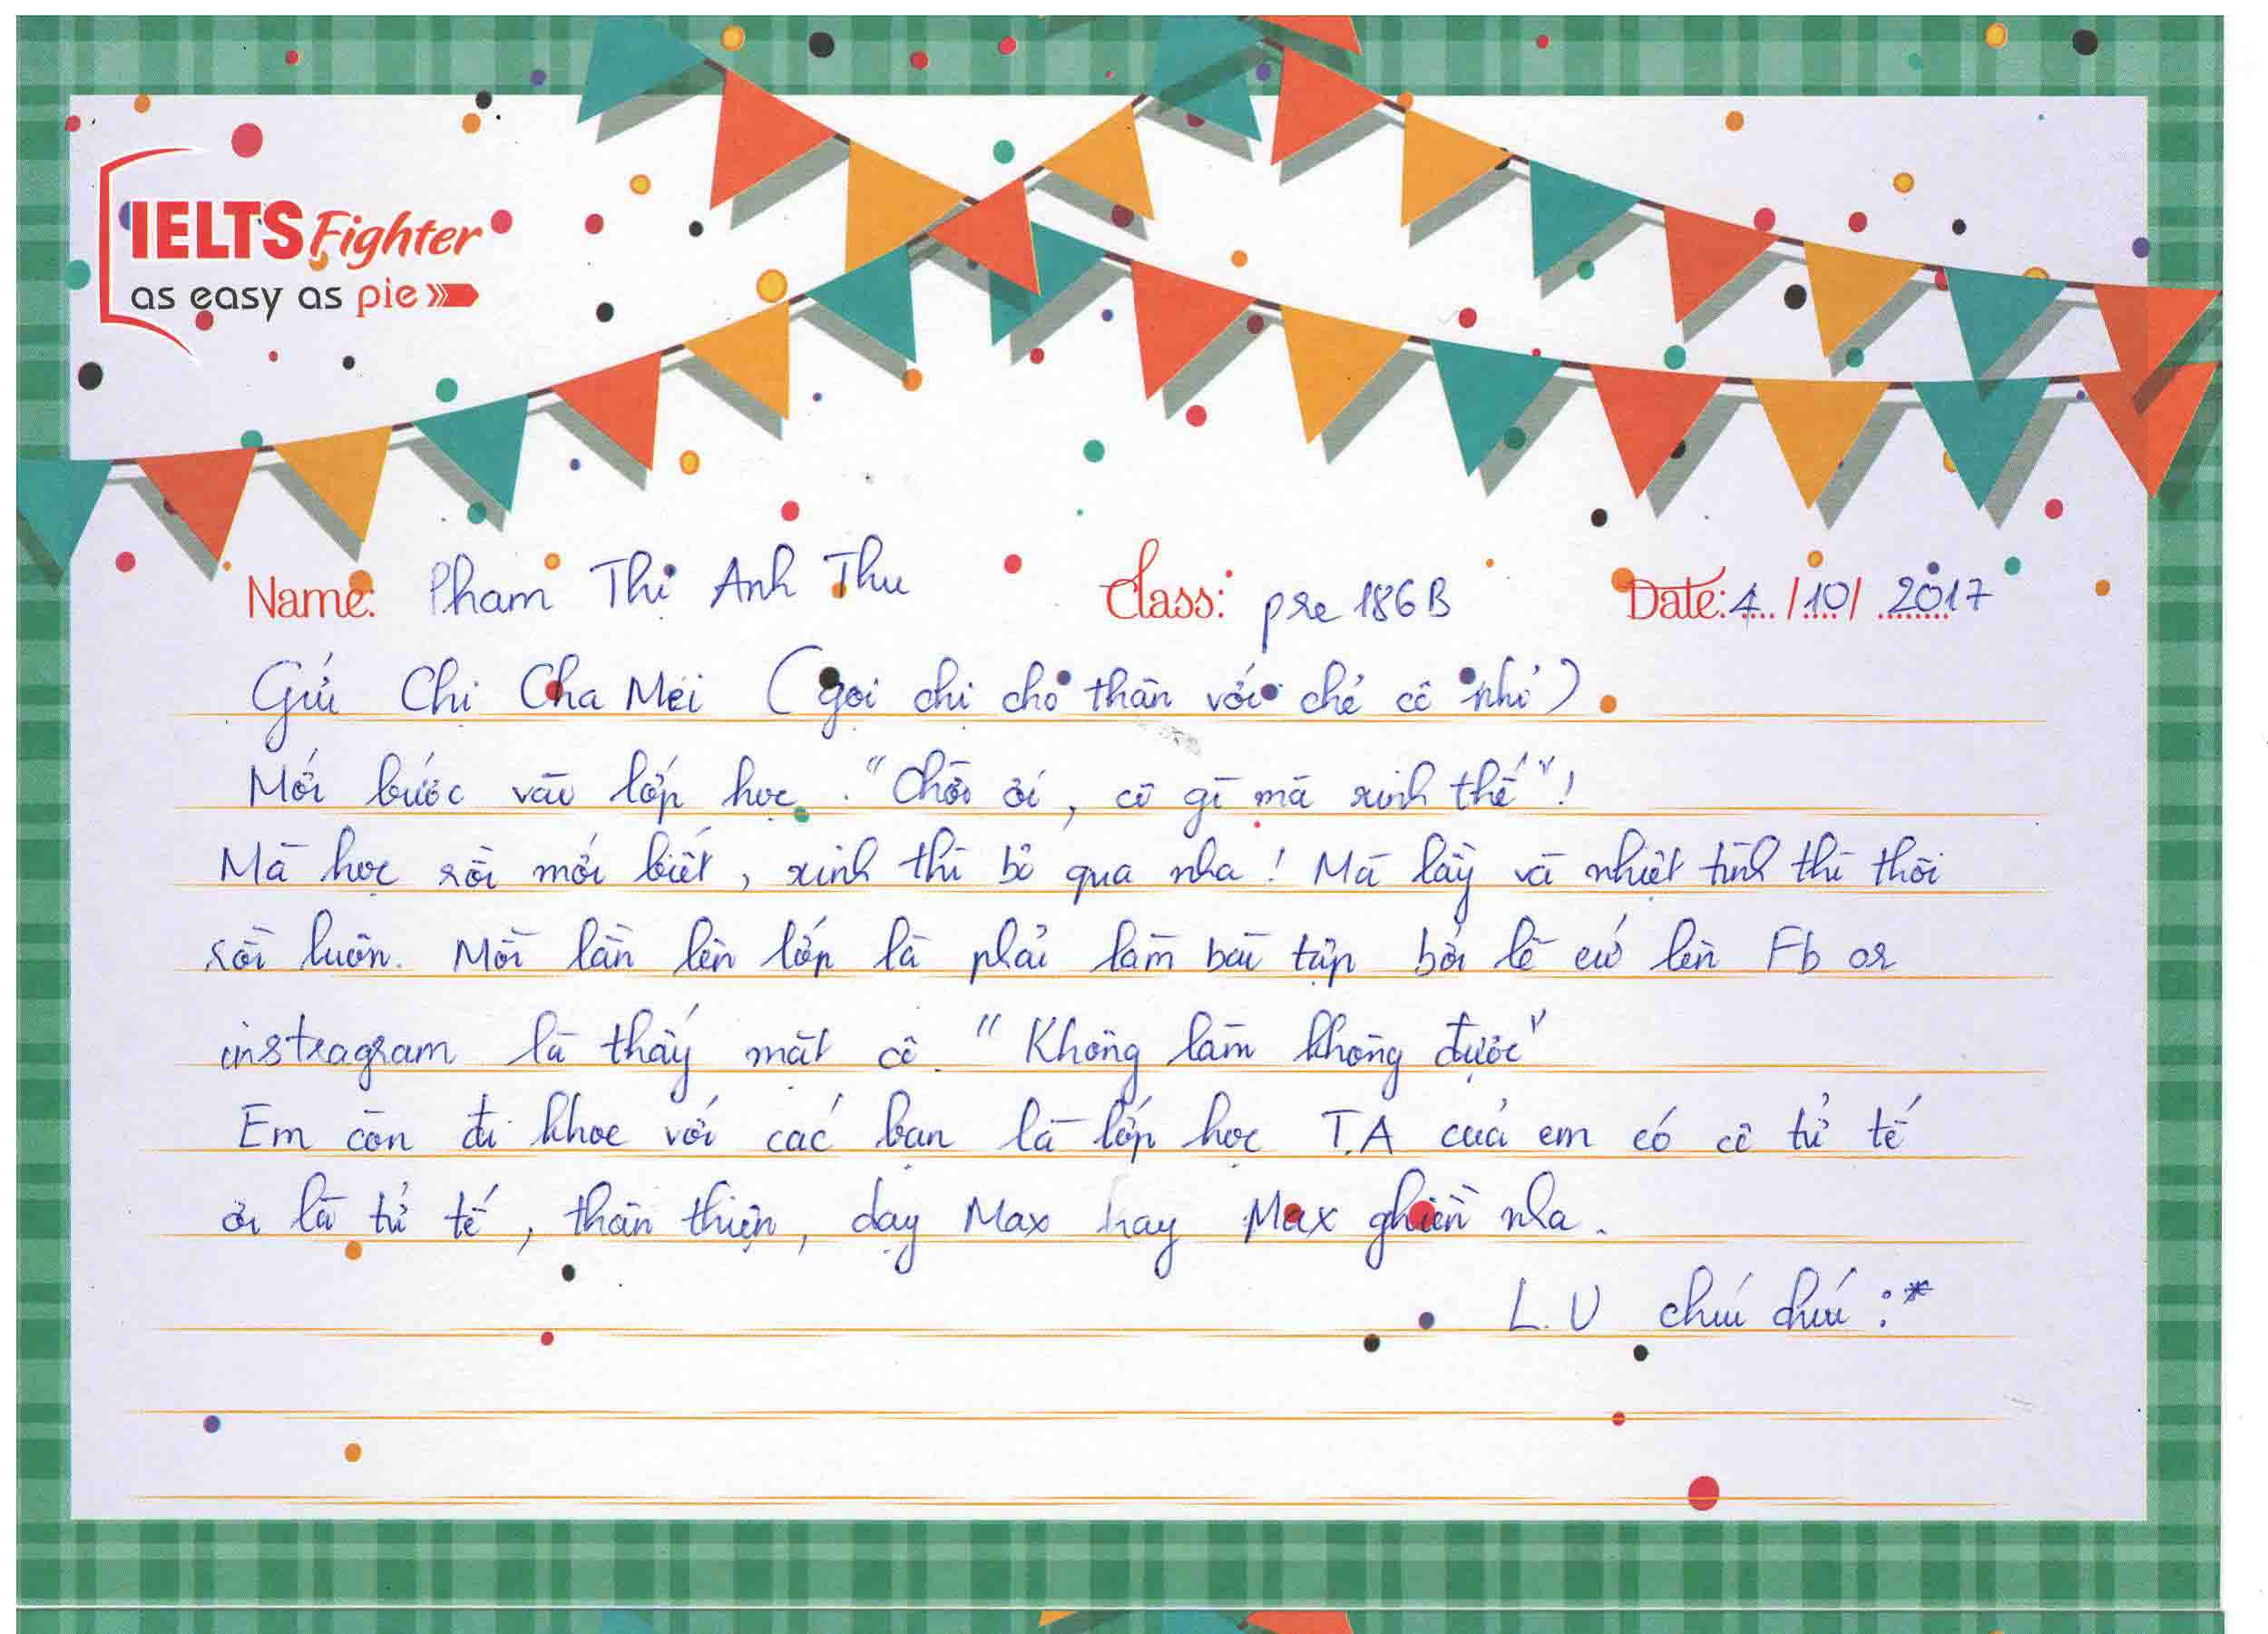 IELTS Fighter
as easy as pie
Name: Phạm Thị Anh Thu Class: pre 186B Date: 4/10/2017
Gửi Chị Cha Mei (gọi chị cho thân với chẻ cô nhỉ)
Mới bước vào lớp học. "Chời ơi, cô gì mà xinh thế"!
Mà học rồi mới biết, xinh thì bỏ qua nha! Mà lầy và nhiệt tình thì thôi
rồi luôn. Mỗi lần lên lớp là phải làm bài tập bởi lẽ cứ lên Fb or
instragram là thấy mặt cô. "Không làm không được"
Em còn đi khoe với các bạn là lớp học T.A của em có cô tử tế
ơi là tử tế, thân thiện, dạy Max hay Max ghiền nha.
L.U chúi chúi :*